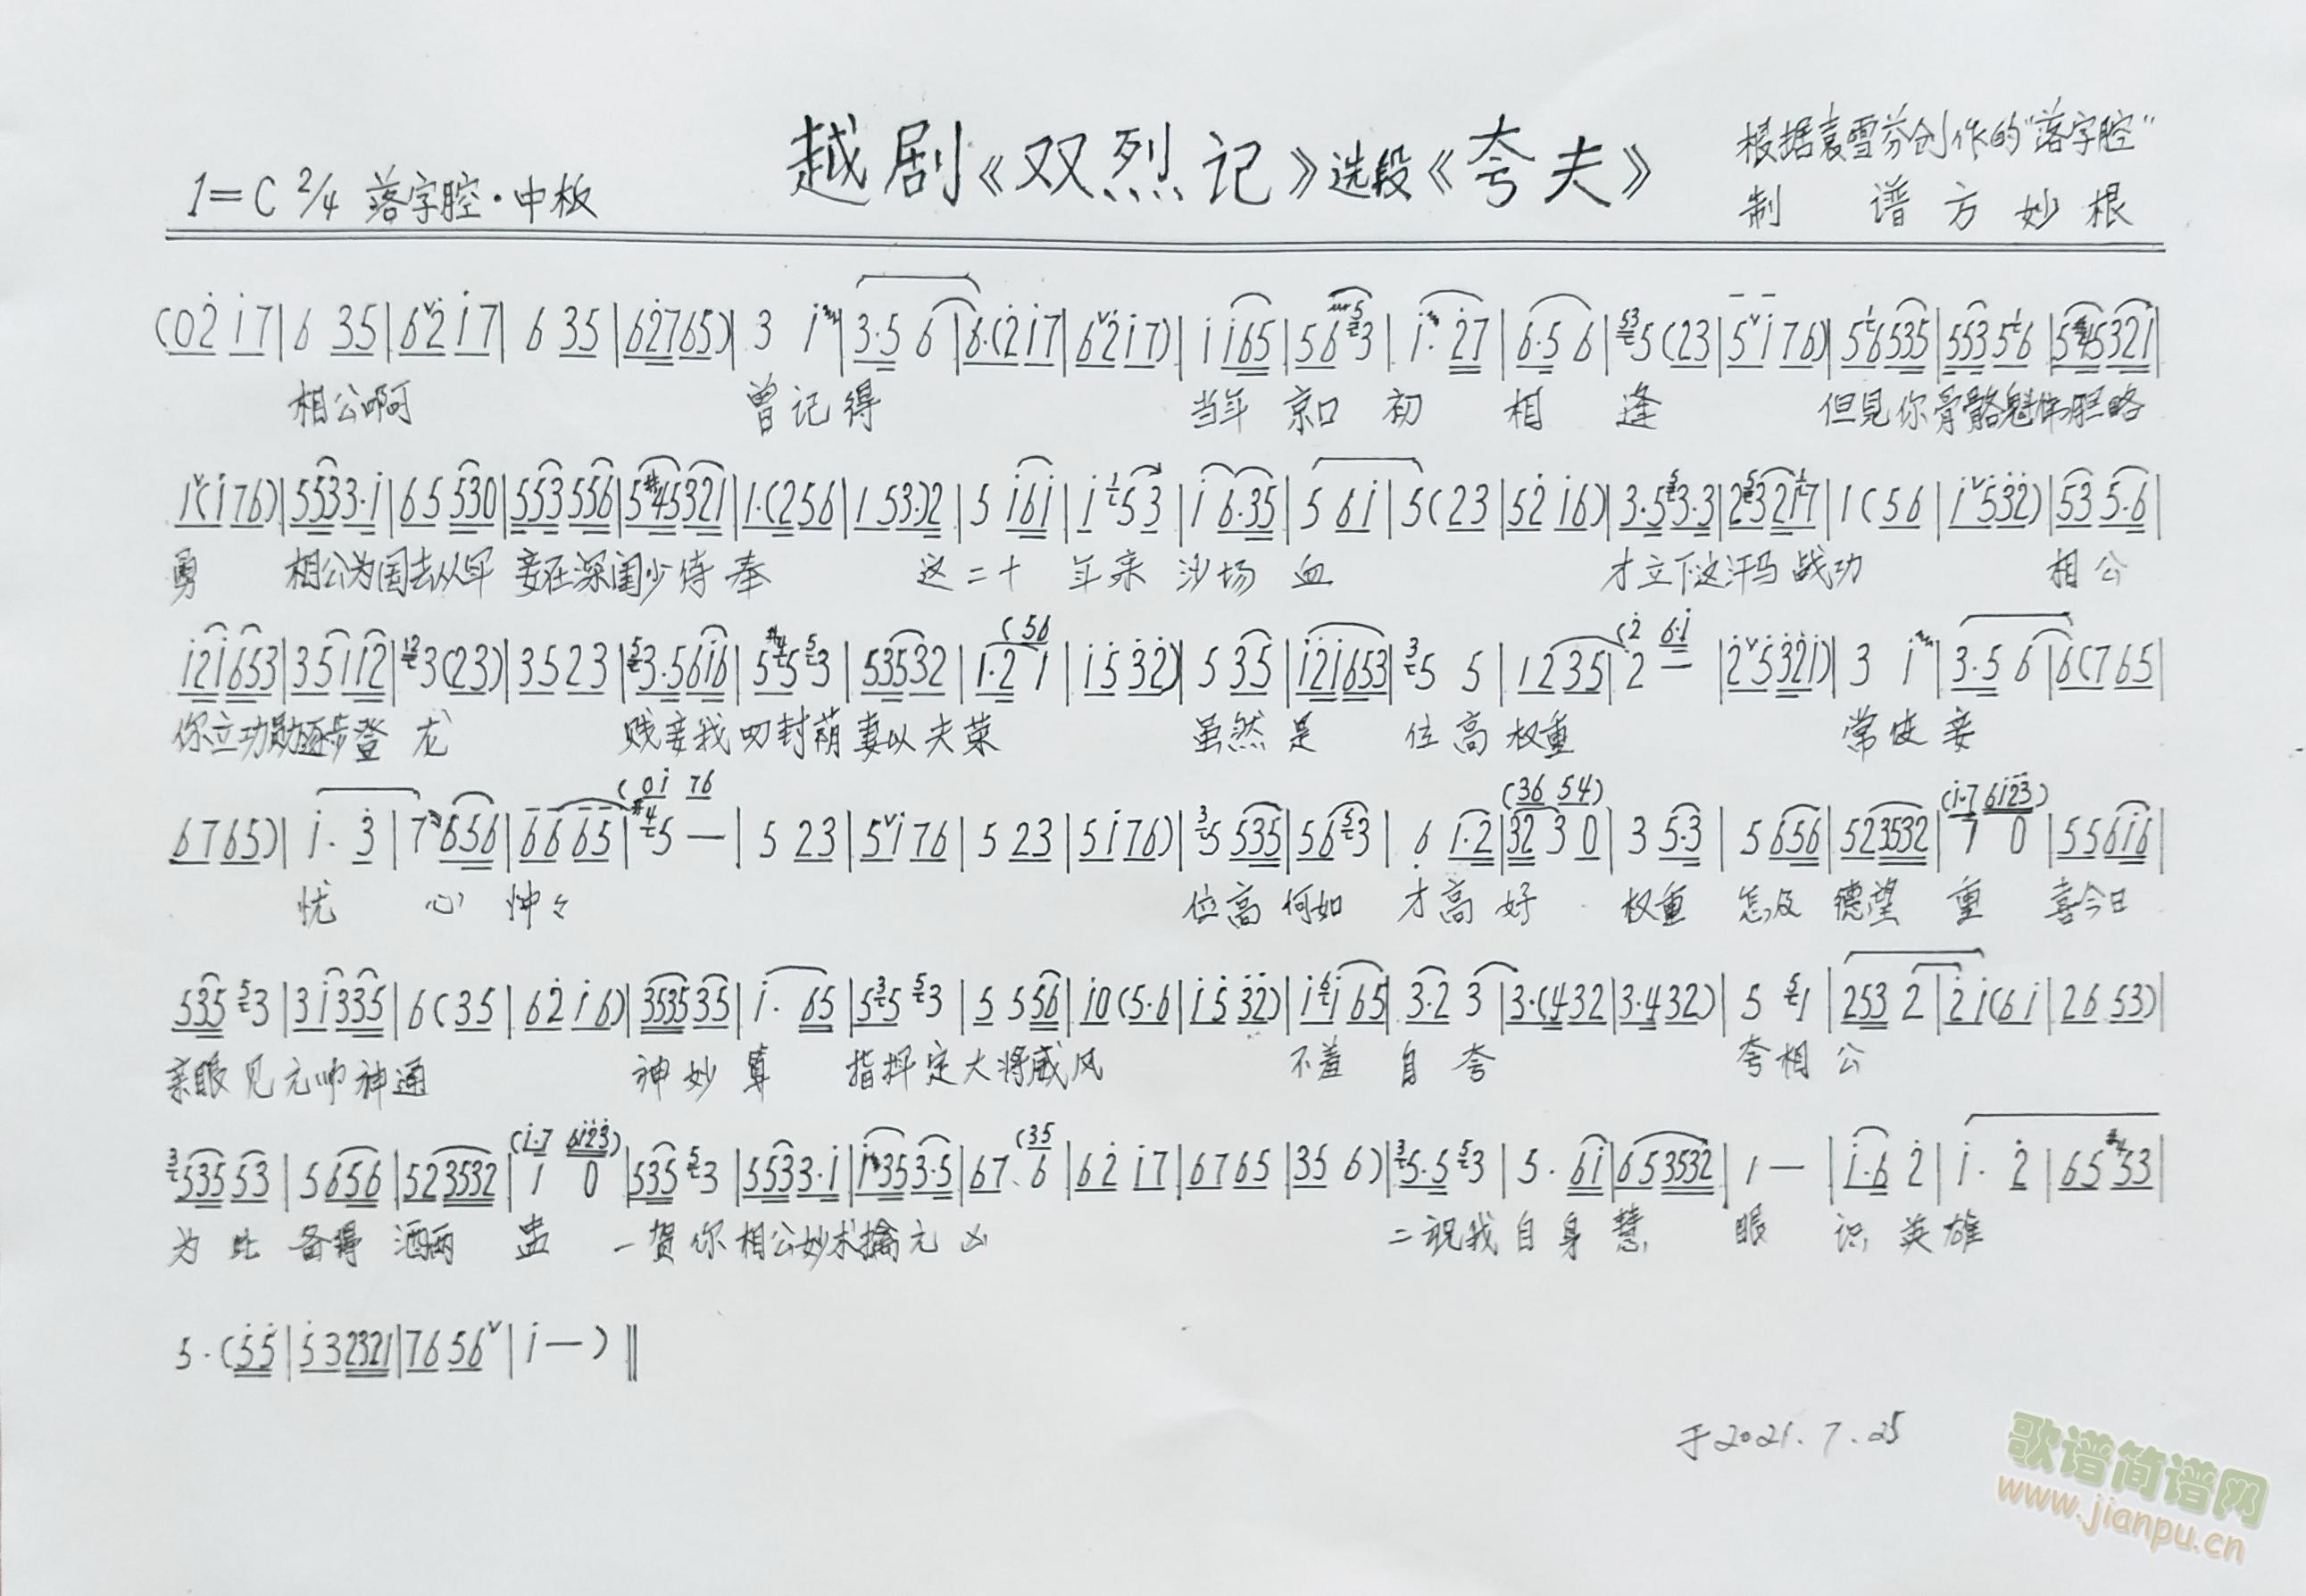 越剧《双烈记》选段《夸夫》
根据袁雪芬创作的"落字腔"
1=C 2/4 落字腔·中板
制 谱 方 妙 根
(02̇ i̇7|6 35|6ˇ2̇ i̇7|6 35|62̇765)|3 i̇|3·5 6|6·(2̇i̇7|6ˇ2̇i̇7)|i̇ i̇65|56 3|i̇· 2̇7|6·5 6|5(23|5ˇi̇76)|56535|55356|5#45321|
相公啊 曾记得 当年 京口 初 相 逢 但見你骨骼魁伟胆略
1ˇ(i̇76)|5533·i̇|65 530|553556|5#45321|1·(256|153·)2|5 i̇6i̇|i̇ 53|i̇ 6·35|5 6i̇|5(23|52̇ i̇6)|3·53·3|232i7|1(56|i̇ˇ5̇3̇2̇)|53 5·6|
勇 相公为国去从军 妾在深闺少侍奉 这二十 年来 沙场 血 才立下这汗马 战功 相公
i̇2̇i̇653|35i̇i̇2̇|3(23)|3523|3·56i̇6|553|53532|1·2 1|(56 i̇5̇3̇2̇)|5 35|i̇2̇i̇653|5 5|1235|2 —|(2̇ 6·i̇ 2̇ˇ5̇3̇2̇i̇)|3 i̇|3·5 6|6(765|
你立功勋逐步登 龙 贱妾我叨封荫妻以夫荣 虽然 是 位高 权重 常使 妾
6765)|i̇· 3̇|7 656|66 65|#4 5 —|(0i̇ 76|5 23|5ˇi̇76|5 23|5i̇76)|5 535|563|6 1·2|32 3 0|(36 54)|3 5·3|5 656|523532|1 0|(i̇·7 6i̇2̇3̇)|556i̇6|
忧 心 忡々 位高 何如 才高 好 权重 怎及 德望 重 喜今日
535 3|3i̇335|6(35|62̇ i̇6)|353535|i̇· 65|55 3|5 556|i̇0(5·6|i̇5̇ 3̇2̇)|i̇i̇65|3·2 3|3·(432|3·432)|5 1|253 2|2i̇(6i̇|26 53)|
亲眼见元帅神通 神妙算 指挥定大将威风 不羞 自 夸 夸相 公
53553|5656|523532|1 0|(i̇·7 6i̇2̇3̇)|535 3|5533·i̇|i̇353·5|67 6|(35|62̇ i̇7|6765|35 6)|5·5 3|5· 6i̇|653532|1 —|i̇·6 2̇|i̇· 2̇|65 #453|
为此 备得 酒两 盅 一贺你 相公妙术擒元凶 二祝我自身慧 眼 识 英雄
5·(5̇5̇|5̇32321|7656ˇ|i̇ —)‖
于2021.7.25
歌谱简谱网
www.jianpu.cn